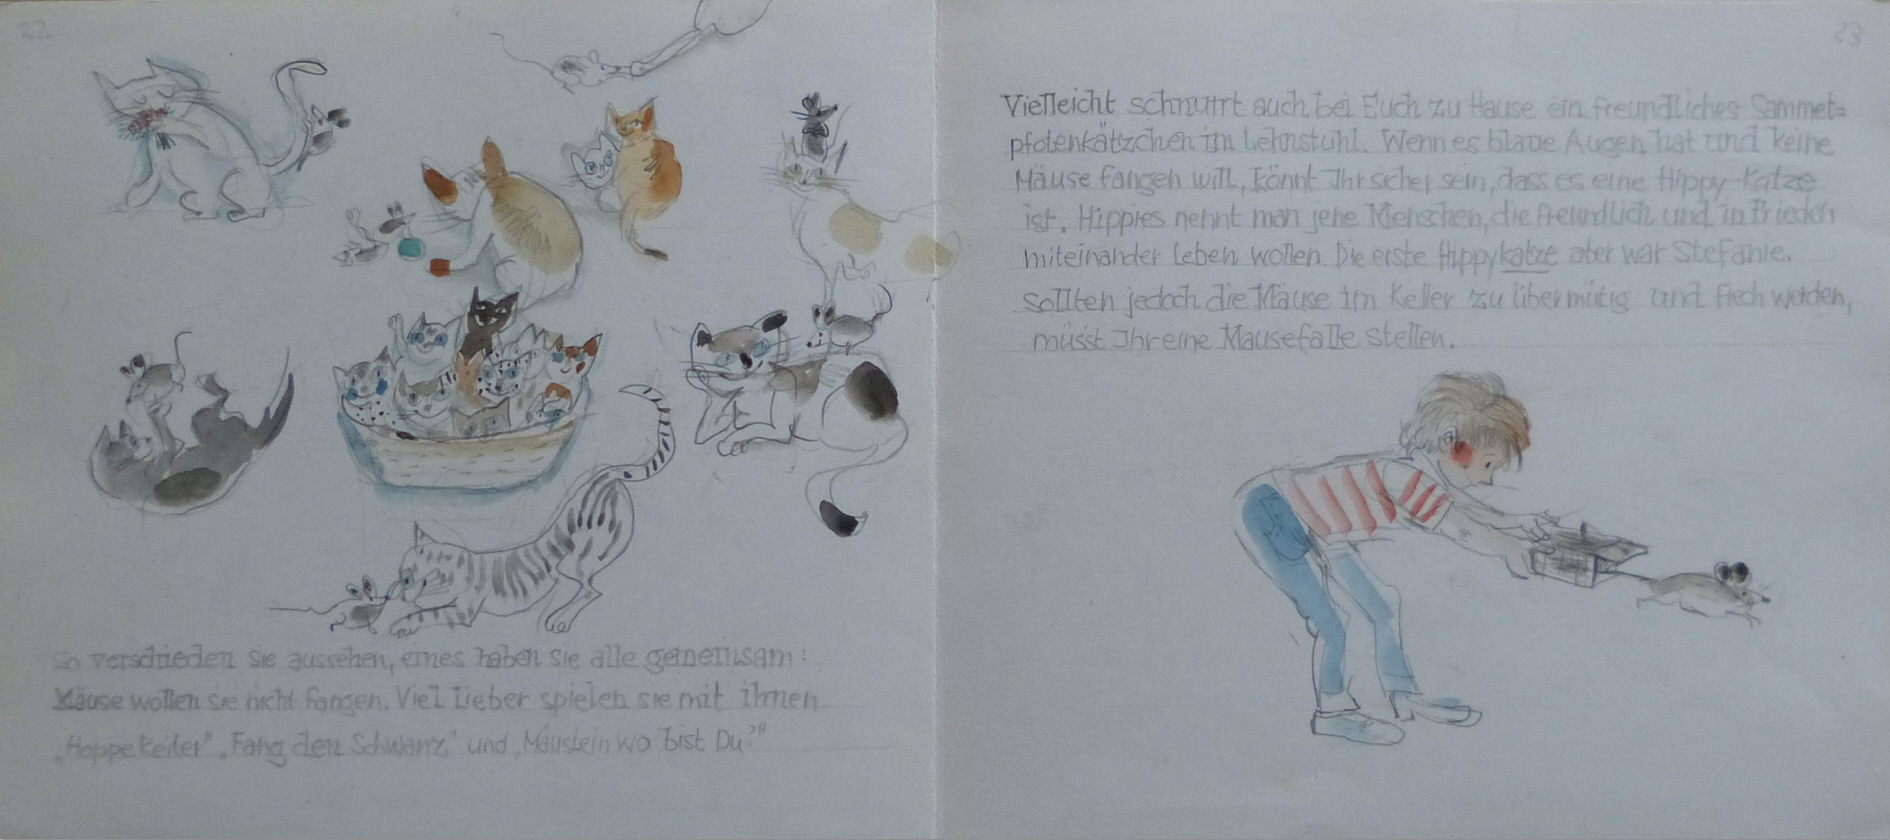 22
So verschieden sie aussehen, eines haben sie alle gemeinsam:
Mäuse wollen sie nicht fangen. Viel lieber spielen sie mit ihnen
„Hoppe Reiter" „Fang den Schwanz" und „Mäuslein wo bist Du?"
23
Vielleicht schnurrt auch bei Euch zu Hause ein freundliches Sammet=
pfotenkätzchen im Lehnstuhl. Wenn es blaue Augen hat und keine
Mäuse fangen will, könnt Ihr sicher sein, dass es eine Hippy-Katze
ist. Hippies nennt man jene Menschen, die freundlich und in Frieden
miteinander leben wollen. Die erste Hippykatze aber war Stefanie.
Sollten jedoch die Mäuse im Keller zu übermütig und frech werden,
müsst Ihr eine Mausefalle stellen.